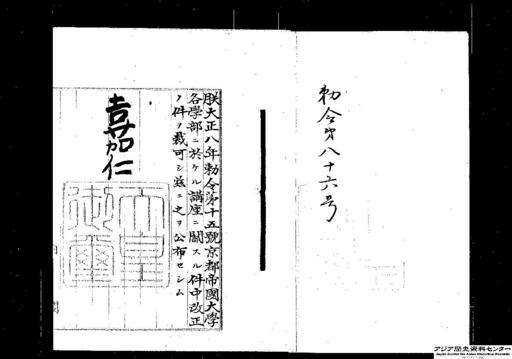 勅令第八十六号
朕大正八年勅令第十五號京都帝國大學
各學部ニ於ケル講座ニ關スル件中改正
ノ件ヲ裁可シ茲ニ之ヲ公布セシム
嘉仁
天皇
御璽
アジア歴史資料センター
Japan Center for Asian Historical Records